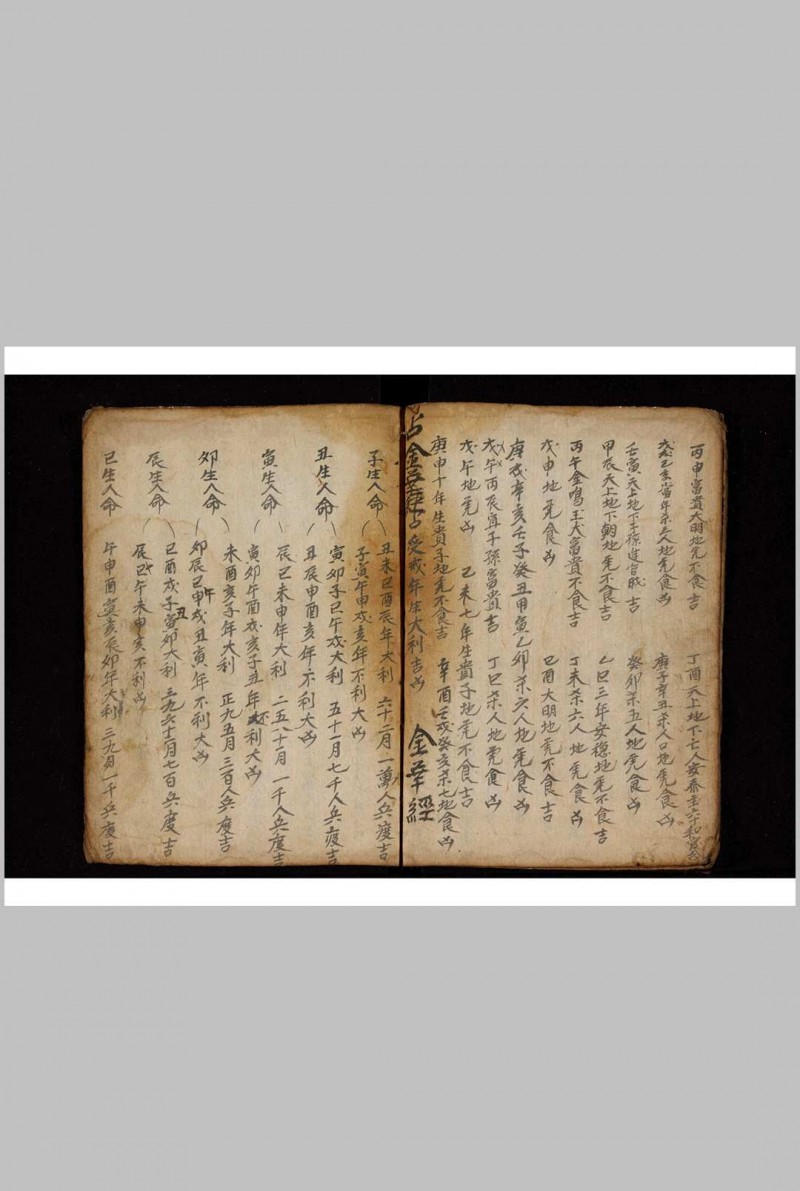 丙申富貴大明地虎不食吉 丁酉天上地下亡人安泰
戊戌己亥當年杀三人地虎食凶 庚子辛丑杀人口地虎食凶
壬寅天上地下子孫進官 吉 癸卯杀五人地虎食凶
甲辰天上地下朝地虎不食吉 乙巳三年安穩地虎不食吉
丙午金鳴玉犬富貴不食吉 丁未杀六人地虎食凶
戊申地虎食凶 己酉大明地虎不食吉
庚戌辛亥壬子癸丑甲寅乙卯杀六人地虎食凶
丙辰宜子孫富貴吉 丁巳杀人地虎食凶
戊午地虎凶 己未七年生貴子地虎不食吉
庚申十年生貴子地虎不食吉 辛酉壬戌癸亥杀七地食凶
占 受戒年生大利吉凶 金華經
子生人命 丑未巳酉辰年大利 六十二月一萬人兵度吉
子寅午申戌亥年不利大凶
丑生人命 寅卯子巳午戌大利 五十一月七千人兵度吉
丑辰申酉亥年不利大凶
寅生人命 辰巳未申年大利 二五八十月一千人兵度吉
寅卯午酉戌亥子丑年不利大凶
卯生人命 未酉亥子年大利 正九五月三百人兵度吉
卯辰巳午申戌丑寅年不利大凶
辰生人命 巳酉戌子寅丑卯大利 三九六十月七百兵度吉
辰巳午未申亥不利凶
巳生人命 午申酉寅亥辰卯年大利 三九月一千兵度吉